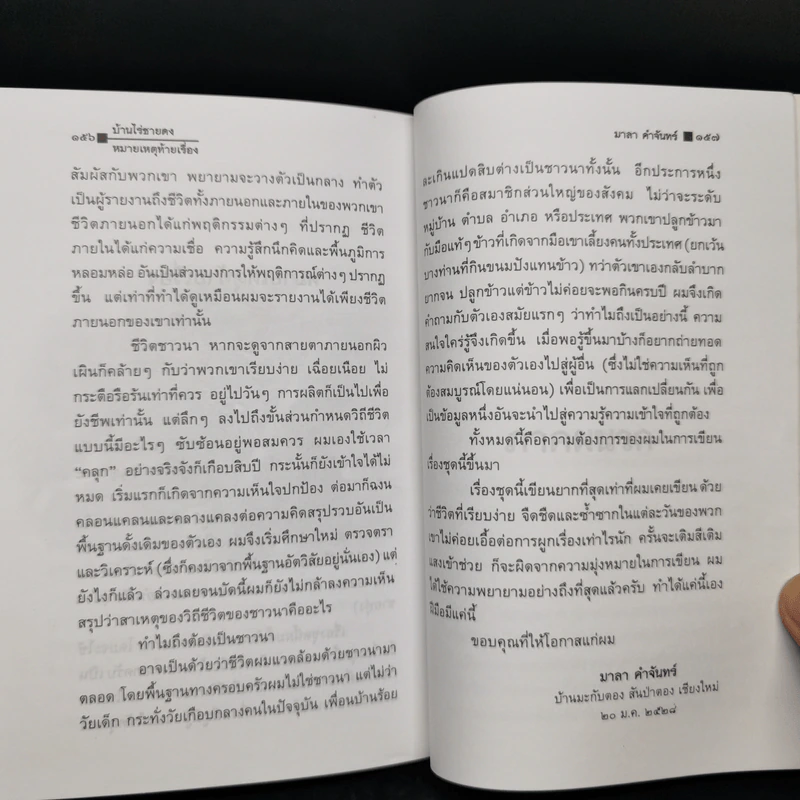 ๑๕๖ บ้านไร่ชายดง
หมายเหตุท้ายเรื่อง
สัมผัสกับพวกเขา พยายามจะวางตัวเป็นกลาง ทำตัว
เป็นผู้รายงานถึงชีวิตทั้งภายนอกและภายในของพวกเขา
ชีวิตภายนอกได้แก่พฤติกรรมต่างๆ ที่ปรากฏ ชีวิต
ภายในได้แก่ความเชื่อ ความรู้สึกนึกคิดและพื้นภูมิการ
หลอมหล่อ อันเป็นส่วนบงการให้พฤติการณ์ต่างๆ ปรากฏ
ขึ้น แต่เท่าที่ทำได้ดูเหมือนผมจะรายงานได้เพียงชีวิต
ภายนอกของเขาเท่านั้น
ชีวิตชาวนา หากจะดูจากสายตาภายนอกผิว
เผินก็คล้ายๆ กับว่าพวกเขาเรียบง่าย เฉื่อยเนือย ไม่
กระตือรือร้นเท่าที่ควร อยู่ไปวันๆ การผลิตก็เป็นไปเพื่อ
ยังชีพเท่านั้น แต่ลึกๆ ลงไปถึงขั้นส่วนกำหนดวิถีชีวิต
แบบนี้มีอะไรๆ ซับซ้อนอยู่พอสมควร ผมเองใช้เวลา
“คลุก” อย่างจริงจังก็เกือบสิบปี กระนั้นก็ยังเข้าใจได้ไม่
หมด เริ่มแรกก็เกิดจากความเห็นใจปกป้อง ต่อมาก็ฉงน
คลอนแคลนและคลางแคลงต่อความคิดสรุปรวบอันเป็น
พื้นฐานดั้งเดิมของตัวเอง ผมจึงเริ่มศึกษาใหม่ ตรวจตรา
และวิเคราะห์ (ซึ่งก็คงมาจากพื้นฐานอัตวิสัยอยู่นั่นเอง) แต่
ยังไงก็แล้ว ล่วงเลยจนบัดนี้ผมก็ยังไม่กล้าลงความเห็น
สรุปว่าสาเหตุของวิถีชีวิตของชาวนาคืออะไร
ทำไมถึงต้องเป็นชาวนา
อาจเป็นด้วยว่าชีวิตผมแวดล้อมด้วยชาวนามา
ตลอด โดยพื้นฐานทางครอบครัวผมไม่ใช่ชาวนา แต่ไม่ว่า
วัยเด็ก กระทั่งวัยเกือบกลางคนในปัจจุบัน เพื่อนบ้านร้อย
มาลา คำจันทร์ ๑๕๗
ละเกินแปดสิบต่างเป็นชาวนาทั้งนั้น อีกประการหนึ่ง
ชาวนาก็คือสมาชิกส่วนใหญ่ของสังคม ไม่ว่าจะระดับ
หมู่บ้าน ตำบล อำเภอ หรือประเทศ พวกเขาปลูกข้าวมา
กับมือแท้ๆ ข้าวที่เกิดจากมือเขาเลี้ยงคนทั้งประเทศ (ยกเว้น
บางท่านที่กินขนมปังแทนข้าว) ทว่าตัวเขาเองกลับลำบาก
ยากจน ปลูกข้าวแต่ข้าวไม่ค่อยจะพอกินครบปี ผมจึงเกิด
คำถามกับตัวเองสมัยแรกๆ ว่าทำไมถึงเป็นอย่างนี้ ความ
สนใจใคร่รู้จึงเกิดขึ้น เมื่อพอรู้ขึ้นมาบ้างก็อยากถ่ายทอด
ความคิดเห็นของตัวเองไปสู่ผู้อื่น (ซึ่งไม่ใช่ความเห็นที่ถูก
ต้องสมบูรณ์โดยแน่นอน) เพื่อเป็นการแลกเปลี่ยนกัน เพื่อ
เป็นข้อมูลหนึ่งอันจะนำไปสู่ความรู้ความเข้าใจที่ถูกต้อง
ทั้งหมดนี้คือความต้องการของผมในการเขียน
เรื่องชุดนี้ขึ้นมา
เรื่องชุดนี้เขียนยากที่สุดเท่าที่ผมเคยเขียน ด้วย
ว่าชีวิตที่เรียบง่าย จืดชืดและซ้ำซากในแต่ละวันของพวก
เขาไม่ค่อยเอื้อต่อการผูกเรื่องเท่าไรนัก ครั้นจะเติมสีเติม
แสงเข้าช่วย ก็จะผิดจากความมุ่งหมายในการเขียน ผม
ได้ใช้ความพยายามอย่างถึงที่สุดแล้วครับ ทำได้แค่นี้เอง
ฝีมือมีแค่นี้
ขอบคุณที่ให้โอกาสแก่ผม
มาลา คำจันทร์
บ้านมะกับตอง สันป่าตอง เชียงใหม่
๒๐ ม.ค. ๒๕๒๘